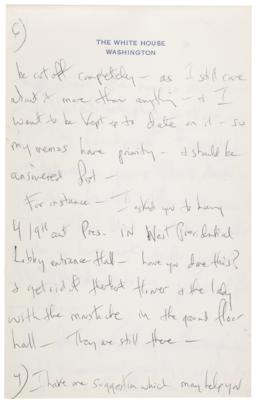 6)
THE WHITE HOUSE
WASHINGTON
be cut off completely - as I still care
about it more than anything - & I
want to be kept up to date on it - so
my memos have priority - & should be
answered first -
For instance - I asked you to hang
out Pres. in West Presidential
Lobby entrance Hall - have you done this?
& get rid of the & the lady
with the mustache in the ground floor
hall - They are still there -
I have one suggestion which may help you